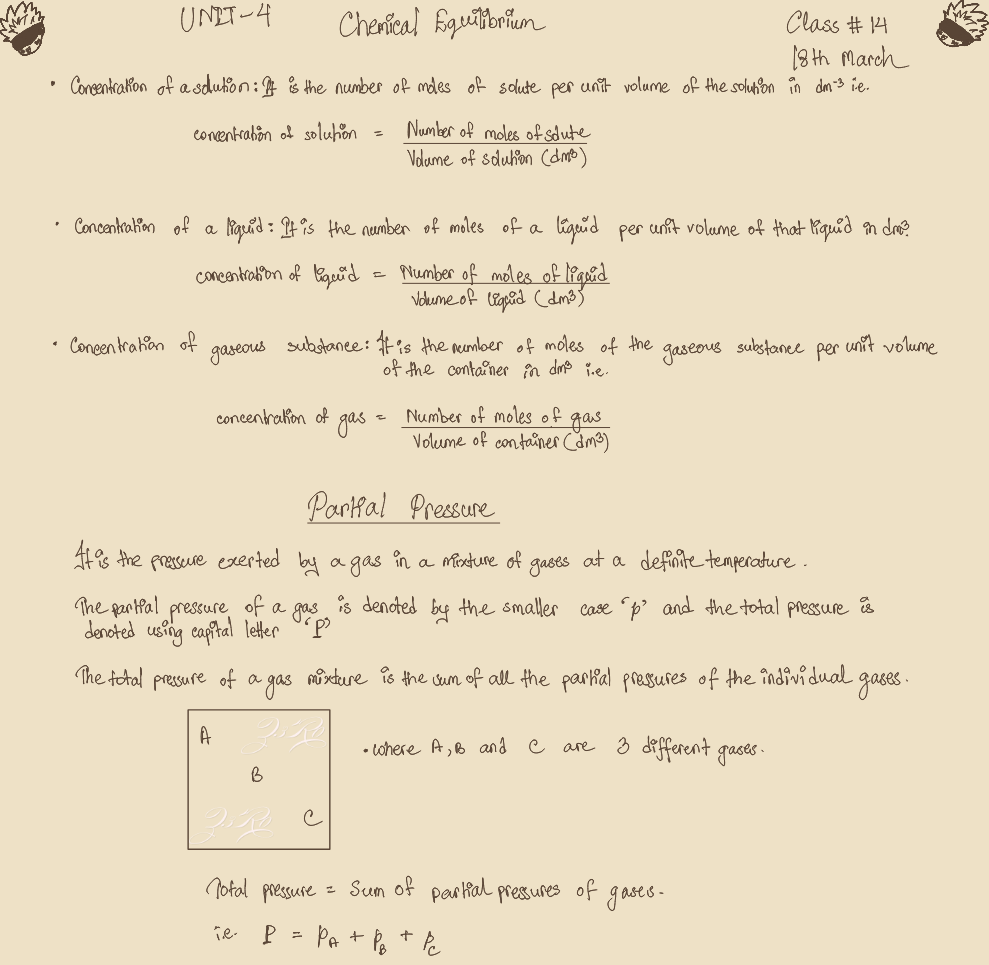 UNIT-4 Chemical Equilibrium Class # 14
18th March
• Concentration of a solution: It is the number of moles of solute per unit volume of the solution in dm⁻³ i.e.
concentration of solution = Number of moles of solute
Volume of solution (dm³)
• Concentration of a liquid: It is the number of moles of a liquid per unit volume of that liquid in dm³.
concentration of liquid = Number of moles of liquid
Volume of liquid (dm³)
• Concentration of gaseous substance: It is the number of moles of the gaseous substance per unit volume
of the container in dm³ i.e.
concentration of gas = Number of moles of gas
Volume of container (dm³)
Partial Pressure
It is the pressure exerted by a gas in a mixture of gases at a definite temperature.
The partial pressure of a gas is denoted by the smaller case 'p' and the total pressure is
denoted using capital letter 'P'
The total pressure of a gas mixture is the sum of all the partial pressures of the individual gases.
A
B
C
• where A, B and C are 3 different gases.
Total pressure = Sum of partial pressures of gases.
i.e. P = p_A + p_B + p_C